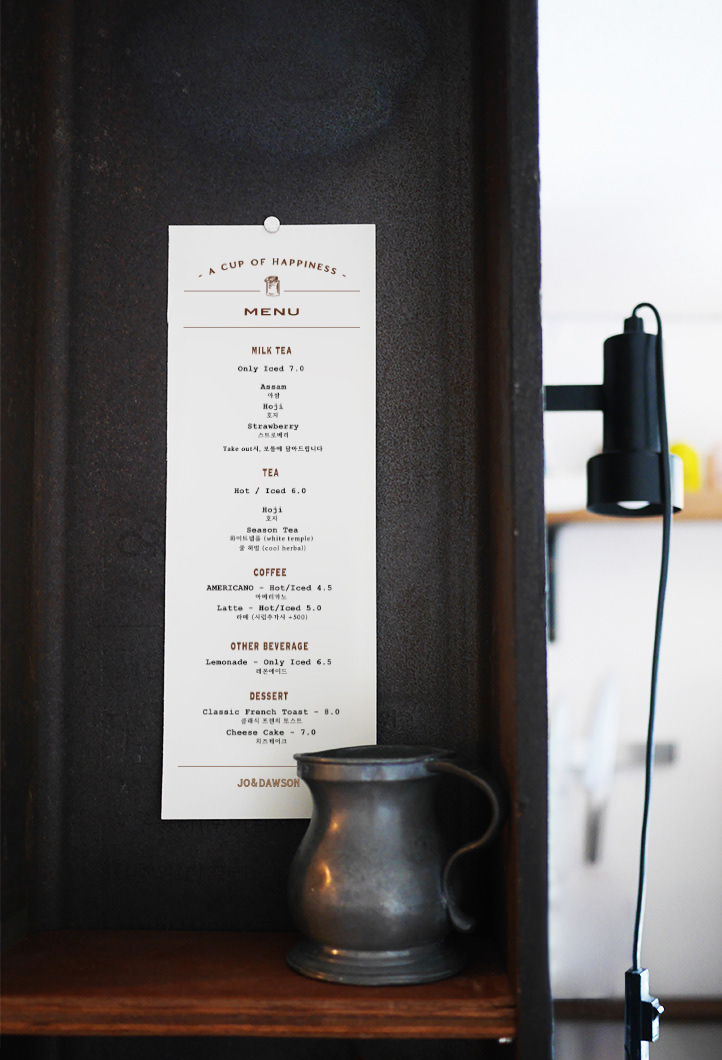 - A CUP OF HAPPINESS -
MENU
MILK TEA
Only Iced 7.0
Assam
아쌈
Hoji
호지
Strawberry
스트로베리
Take out시, 보틀에 담아드립니다
TEA
Hot / Iced 6.0
Hoji
호지
Season Tea
화이트템플 (white temple)
쿨 허벌 (cool herbal)
COFFEE
AMERICANO - Hot/Iced 4.5
아메리카노
Latte - Hot/Iced 5.0
라떼 (시럽추가시 +500)
OTHER BEVERAGE
Lemonade - Only Iced 6.5
레몬에이드
DESSERT
Classic French Toast - 8.0
클래식 프렌치 토스트
Cheese Cake - 7.0
치즈케이크
JO&DAWSON